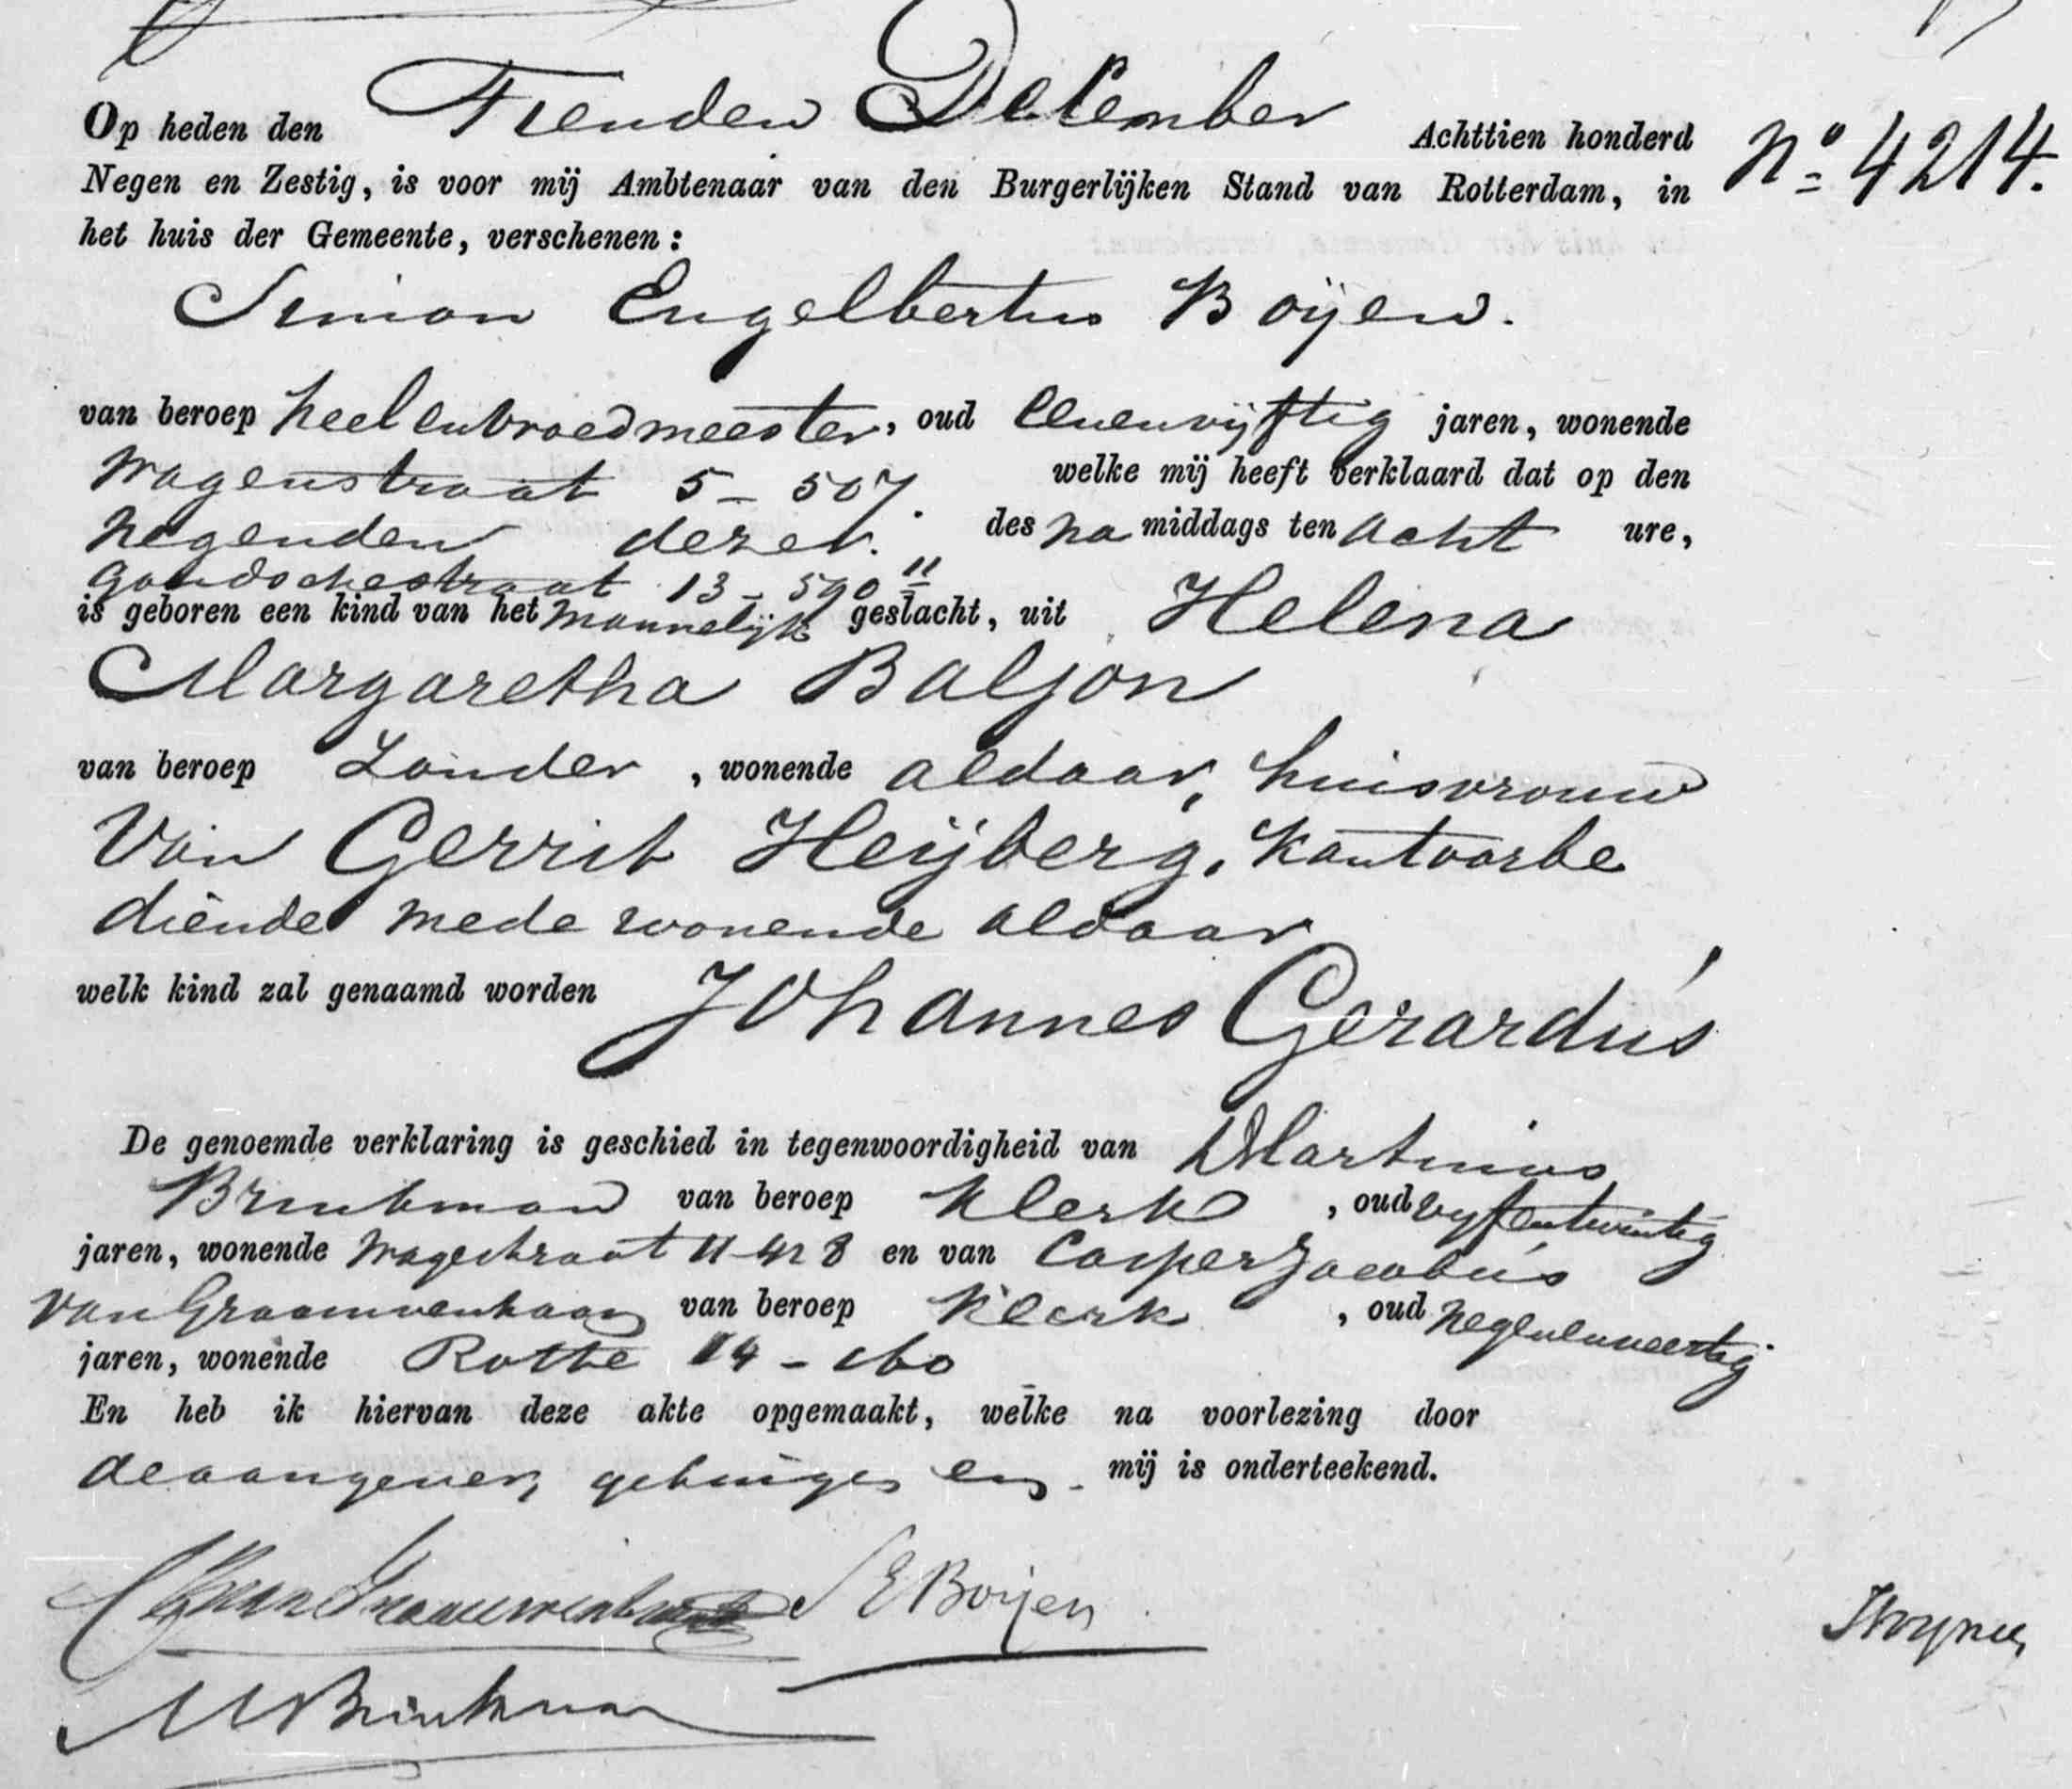 Op heden den Tienden December Achttien honderd
Nº 4214.
Negen en Zestig, is voor mij Ambtenaar van den Burgerlijken Stand van Rotterdam, in
het huis der Gemeente, verschenen:
Simon Engelbertus Boijen.
van beroep heel en vroedmeester, oud eenenvijftig jaren, wonende
Wagenstraat 5 - 507. welke mij heeft verklaard dat op den
negenden dezer. des na middags ten acht ure,
Goudschestraat 13 - 590 11
is geboren een kind van het mannelijk geslacht, uit Helena
Margaretha Baljon
van beroep Zonder, wonende aldaar, huisvrouw
Van Gerrit Heijberg, Kantoorbe
diende mede wonende aldaar
welk kind zal genaamd worden Johannes Gerardus
De genoemde verklaring is geschied in tegenwoordigheid van Martinus
Brinkman van beroep Klerk, oud vijfentwintig
jaren, wonende Wagestraat 11-428 en van Casper Jacobus
van Graauwenhaan van beroep Klerk, oud negenenveertig
jaren, wonende Rotte 14 - 160
En heb ik hiervan deze akte opgemaakt, welke na voorlezing door
de aangever, getuigen en mij is onderteekend.
S E Boijen
M Brinkman